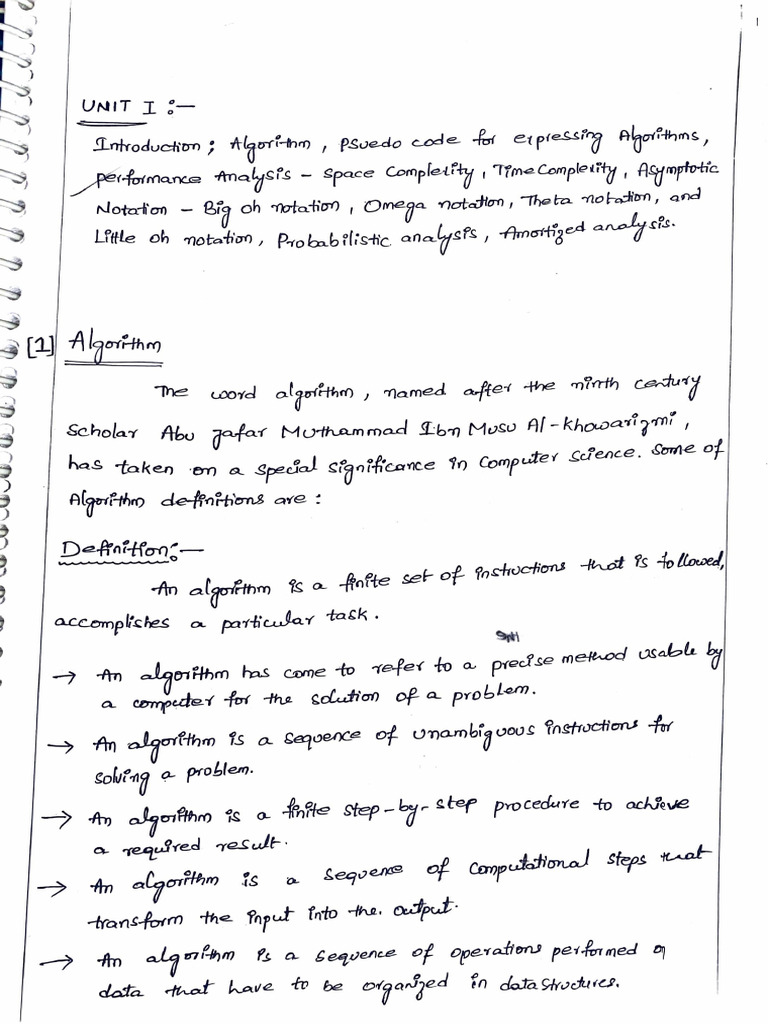 UNIT I :-
Introduction; Algorithm, Psuedo code for expressing Algorithms,
performance Analysis - Space Complexity, Time Complexity, Asymptotic
Notation - Big oh notation, Omega notation, Theta notation, and
Little oh notation, Probabilistic analysis, Amortized analysis.
[1] Algorithm
The word algorithm, named after the ninth century
scholar Abu Jafar Muthammad Ibn Musu Al-Khowarizmi,
has taken on a special significance in computer science. Some of
Algorithm definitions are:
Definition:-
An algorithm is a finite set of instructions that is followed,
accomplishes a particular task.
→ An algorithm has come to refer to a precise method usable by
a computer for the solution of a problem.
→ An algorithm is a sequence of unambiguous instructions for
solving a problem.
→ An algorithm is a finite step-by-step procedure to achieve
a required result.
→ An algorithm is a sequence of computational steps that
transform the input into the output.
→ An algorithm is a sequence of operations performed
data that have to be organized in data structures.